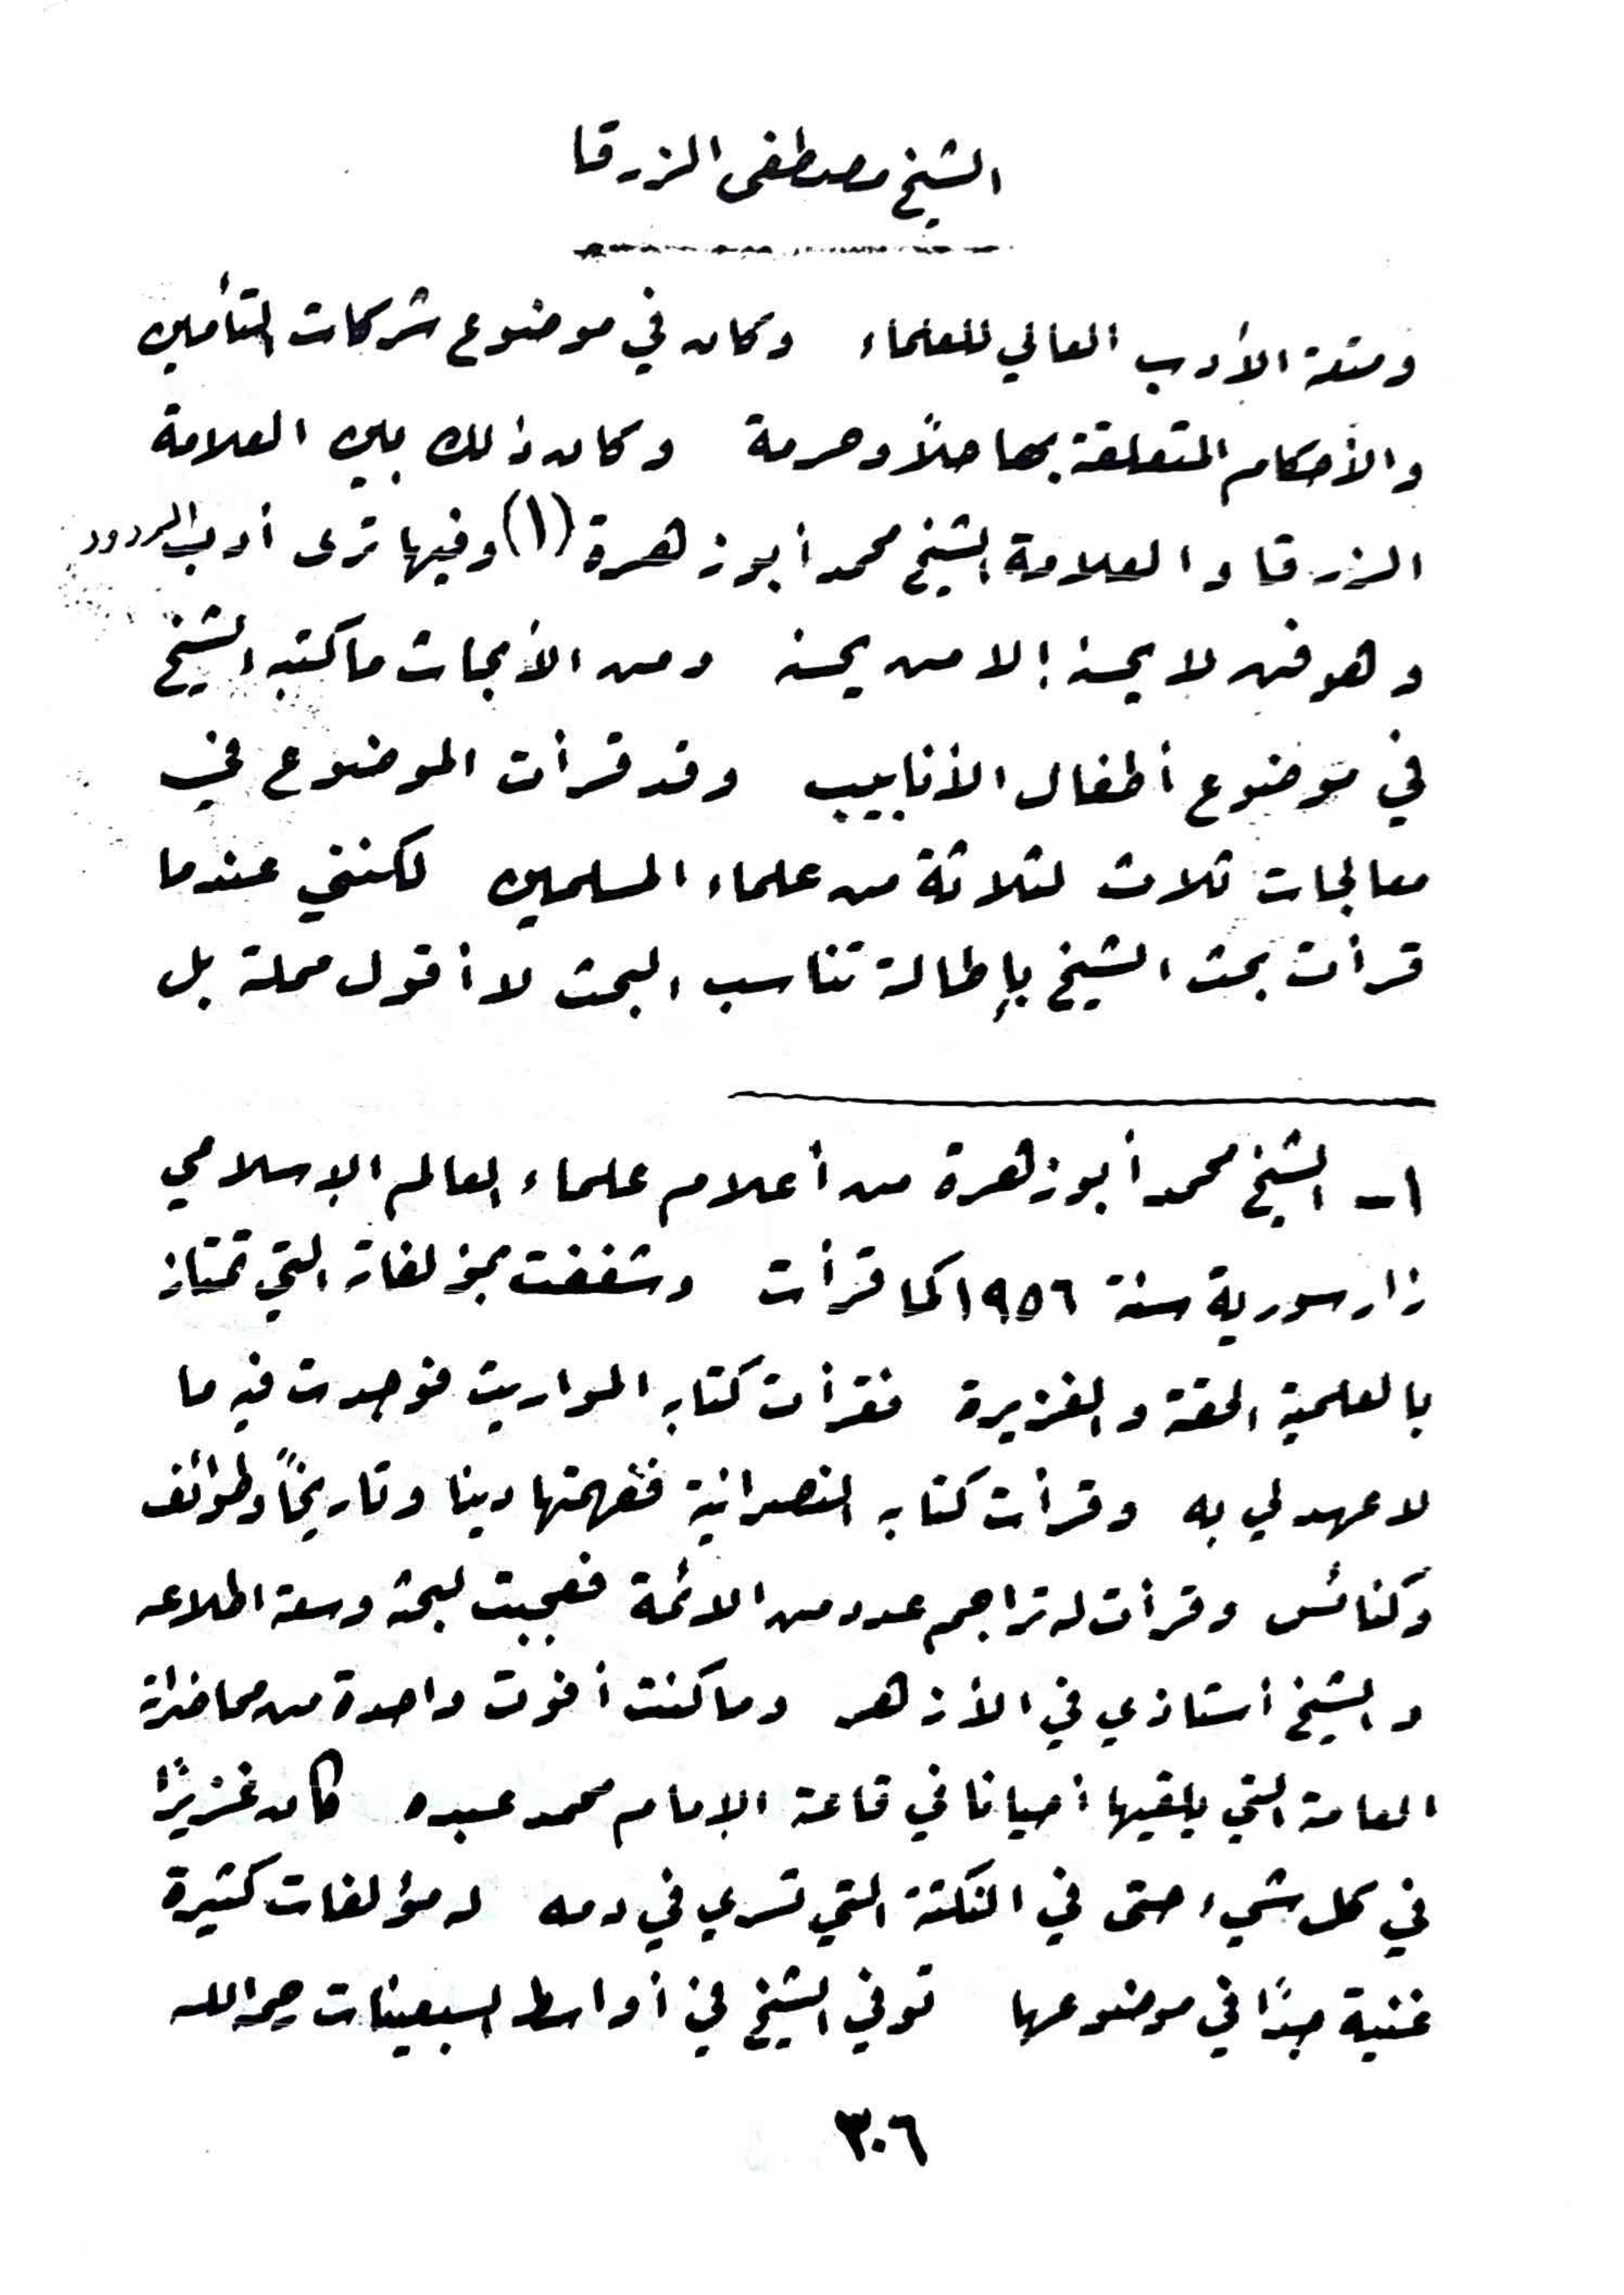 الشيخ مصطفى الزرقا
ومتعة الأدب العالي للعلماء وكان في موضوع شركات التأمين
والأحكام المتعلقة بها حلاً وحرمة وكان ذلك بين العلامة
الزرقا والعلامة الشيخ محمد أبو زهرة (١) وفيها ترى أدب الردود
وهو فن لا يحسنه إلا من يحسنه ومن الأبحاث ما كتبه الشيخ
في موضوع أطفال الأنابيب وقد قرأت الموضوع في
معالجات ثلاث لثلاثة من علماء المسلمين لكنني عندما
قرأت بحث الشيخ بإطالة تناسب البحث لا أقول مملة بل
١ــ الشيخ محمد أبو زهرة من أعلام علماء العالم الإسلامي
زار سورية سنة ١٩٥٦ كما قرأت وشغفت بمؤلفاته التي تمتاز
بالعلمية الحقة والغزيرة فقرأت كتابه المواريث فوجدت فيه ما
لا عهد لي به وقرأت كتابه النصرانية ففهمتها دينا وتاريخاً وطوائف
وكنائس وقرأت له تراجم عدد من الائمة فعجبت لبحثه وسعة اطلاعه
والشيخ أستاذي في الأزهر وما كنت أفوت واحدة من محاضراته
العامة التي يلقيها أحيانا في قاعة الإمام محمد عبده كان غزيرًا
في كل شيء حتى في النكتة التي تسري في دمه له مؤلفات كثيرة
غنية جدًا في موضوعها توفي الشيخ في أواسط السبعينات رحمه الله
٣٠٦